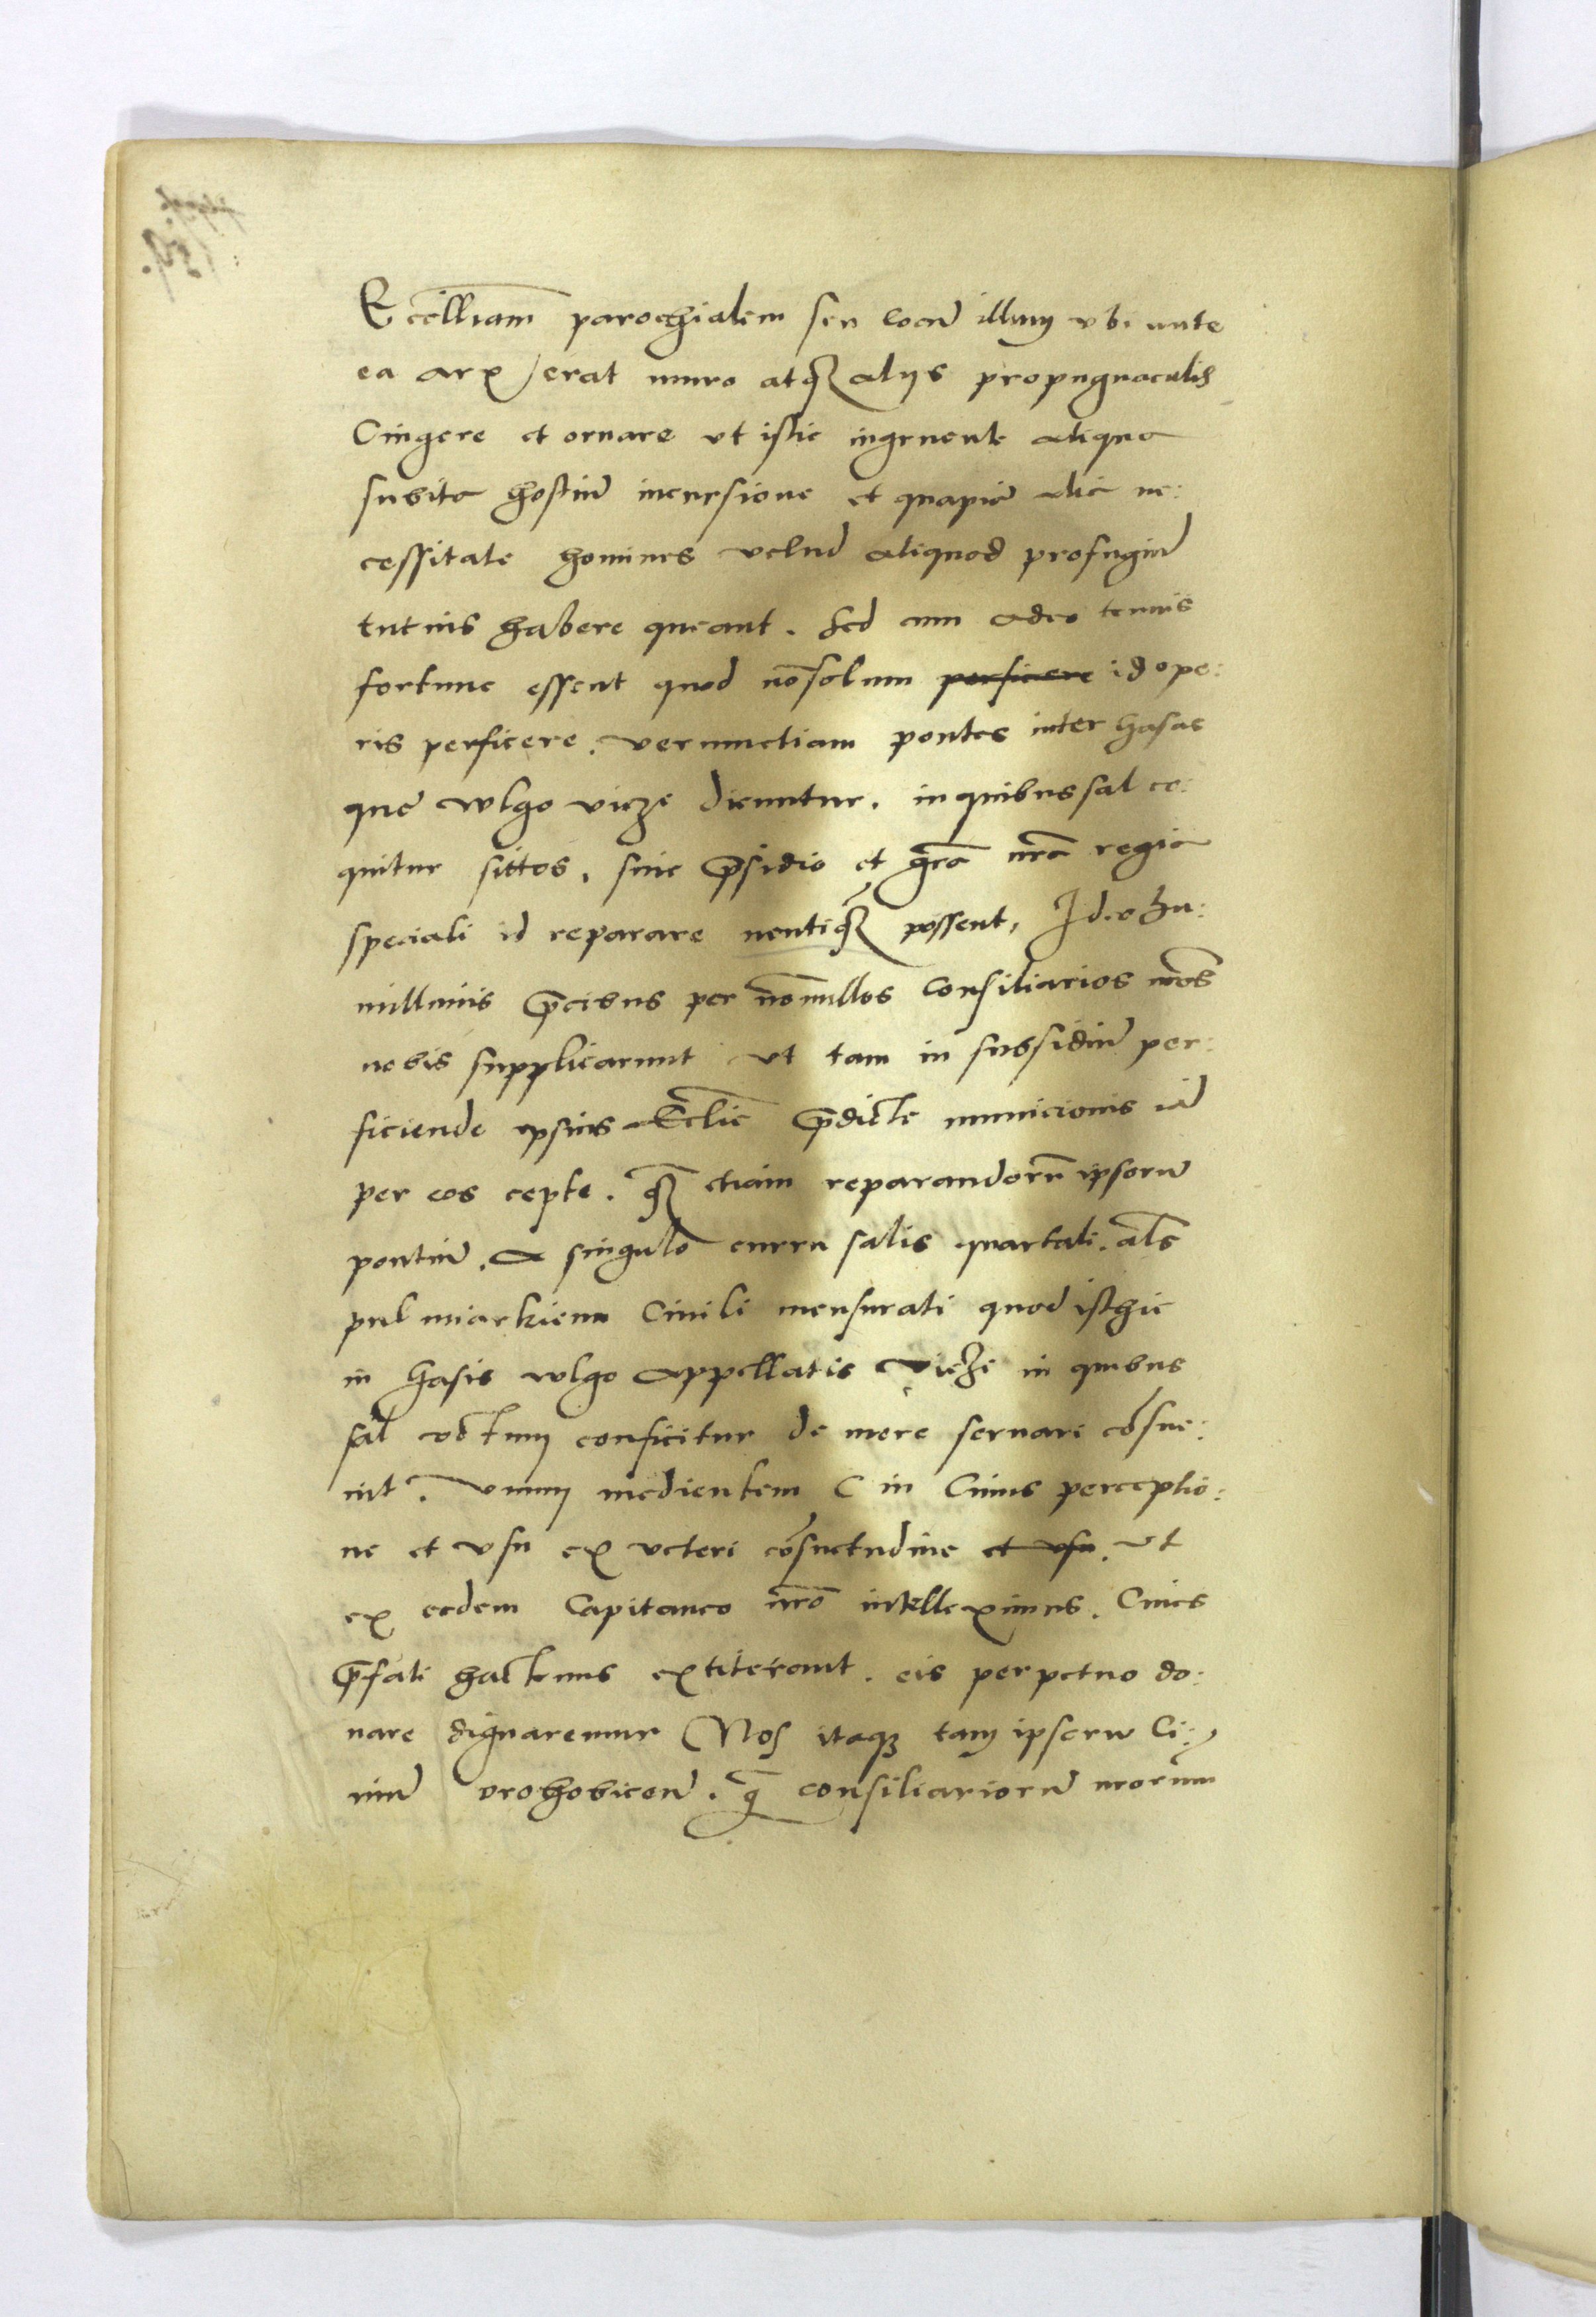 Eccllīam parochialem seu locū illum vbi ante
ea arx erat muro atqȝ alijs propugnaculis
Cingere et ornare vt istic ingruente aliqua
subita hostiū incursione et quapiā alia ne:
cessitate homines velud aliquod profugiū
tutius habere queant. Sed cum adeo tenuis
fortune essent quod nōsolum perficere id ope:
ris perficere. verumetiam pontes inter hasas
que wlgo vieze dicuntur. in quibus sal co:
quitur sittos, sine p̄sidio et gr̄a nr̄a regia
speciali id reparare neutiqȝ possent, Ideo hu:
millimis p̄cibus per nōnnullos Consiliarios nr̄os
nobis supplicarunt vt tam in subsidiū per:
ficiende ipsius Eccl̄ie p̄dicte municionis iā
per eos cepte. qȝ etiam reparandorū ipsorū
pontiū. A singulo curru salis quartali. al̄s
pul miarkiem Ciuili mensurati quod isthic
in hasis wlgo appellatis Vieże in quibus
sal coctum conficitur de more seruari cōsue:
uit. Vnum medientem C in Cuius perceptio:
ne et vsu ex veteri cōsuetudine et vsu. vt
ex eodem Capitaneo nr̄o intelleximus. Ciues
p̄fati hactenus extiterant. eis perpetuo do:
nare dignaremur Nos itaqȝ tam ipsorū Ci:
uiū Drohobicen̄. q̄ consiliariorū nrorum